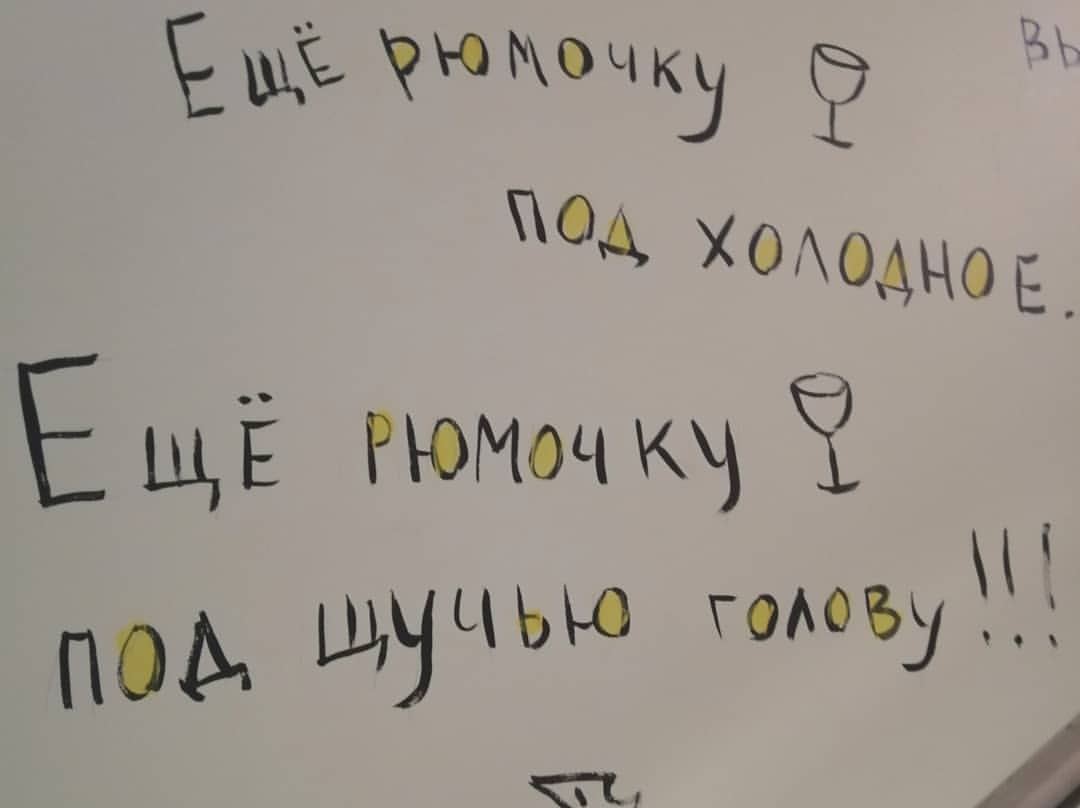 Ещё рюмочку
под холодное.
Ещё рюмочку
под щучью голову!!!